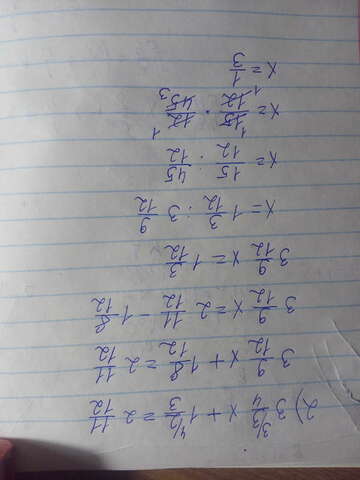 2) 3 ³⁄3/4 x + 1 ⁴⁄2/3 = 2 11/12
3 9/12 x + 1 8/12 = 2 11/12
3 9/12 x = 2 11/12 - 1 8/12
3 9/12 x = 1 3/12
x = 1 3/12 : 3 9/12
x = 15/12 : 45/12
x = ¹15/12₁ · 12¹/45₃
x = 1/3